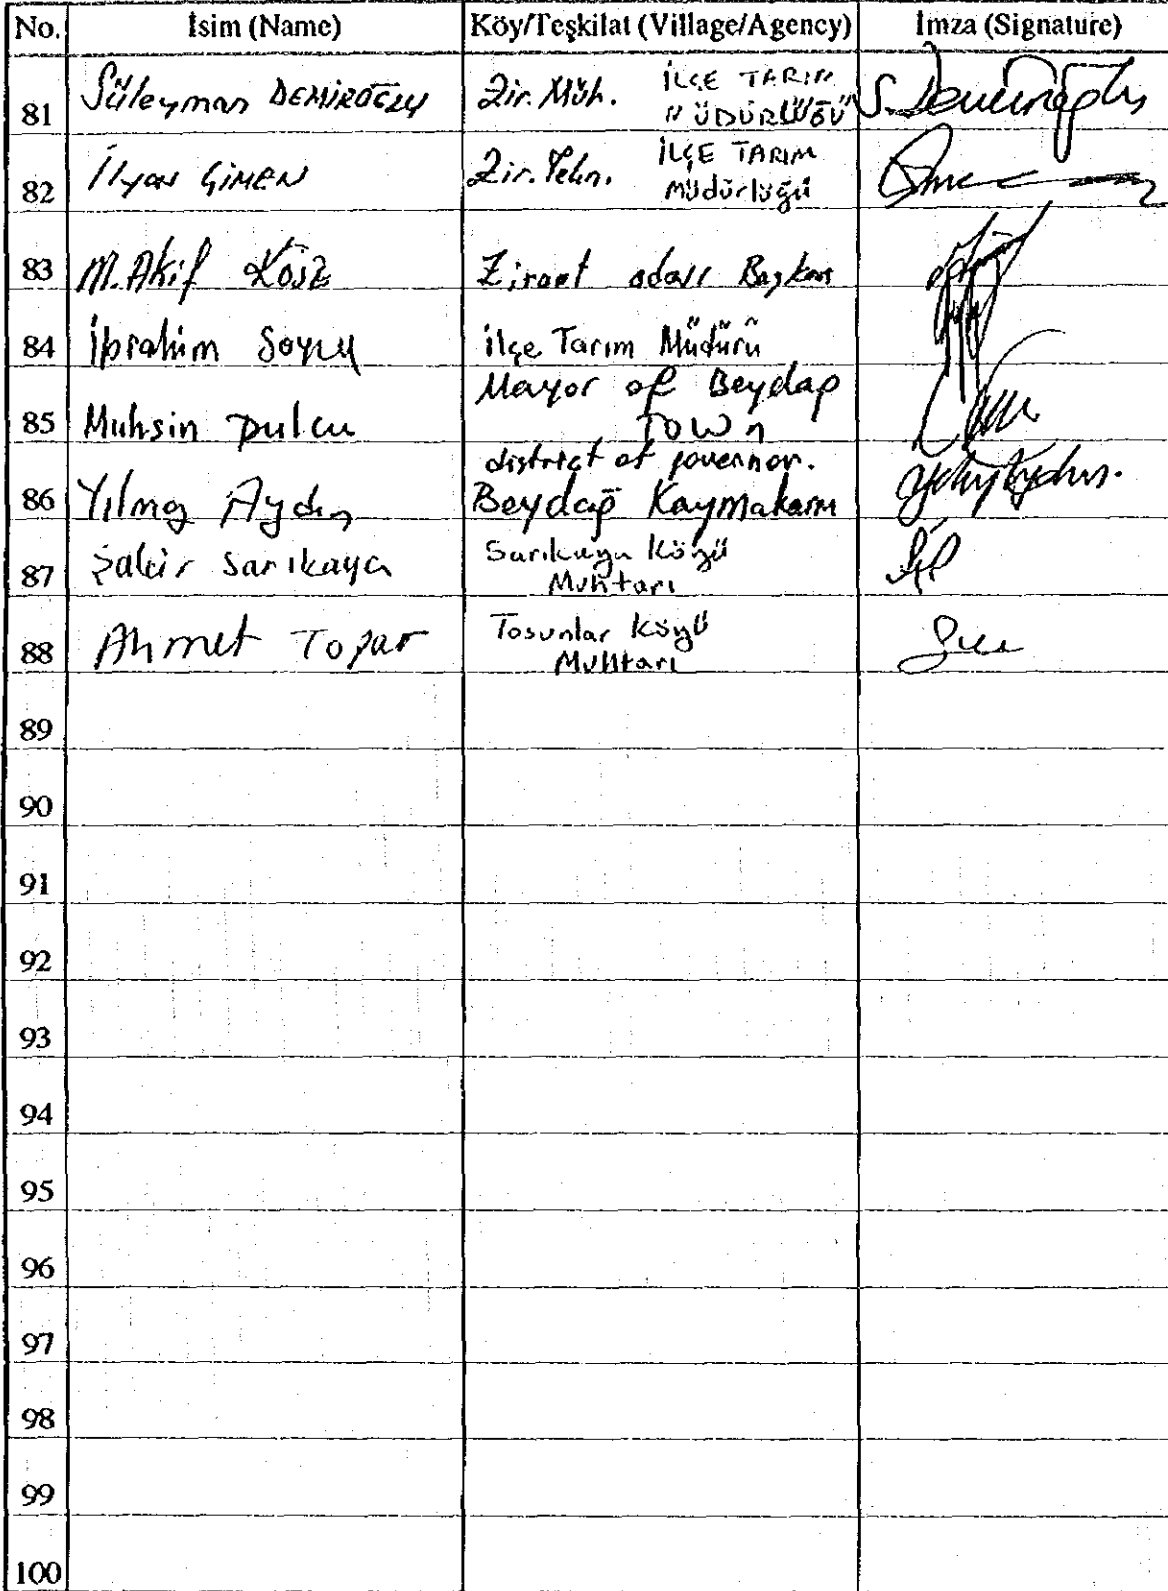 No. İsim (Name) Köy/Teşkilat (Village/Agency) İmza (Signature)
81 Süleyman DEMİROĞLU Zir. Müh. İLÇE TARIM MÜDÜRLÜĞÜ S. Demiroğlu
82 İlyas GİMEN Zir. Tekn. İLÇE TARIM Müdürlüğü
83 M. Akif Köse Ziraat odası Başkanı
84 İbrahim Soyu İlçe Tarım Müdürü
85 Muhsin Dulcu Mayor of Beydap TOWN
86 Yılmaz Aydın district of governor. Beydağ Kaymakamı
87 Şakir Sarıkaya Sarıkaya Köyü Muhtarı
88 Ahmet Topar Tosunlar Köyü Muhtarı
89
90
91
92
93
94
95
96
97
98
99
100